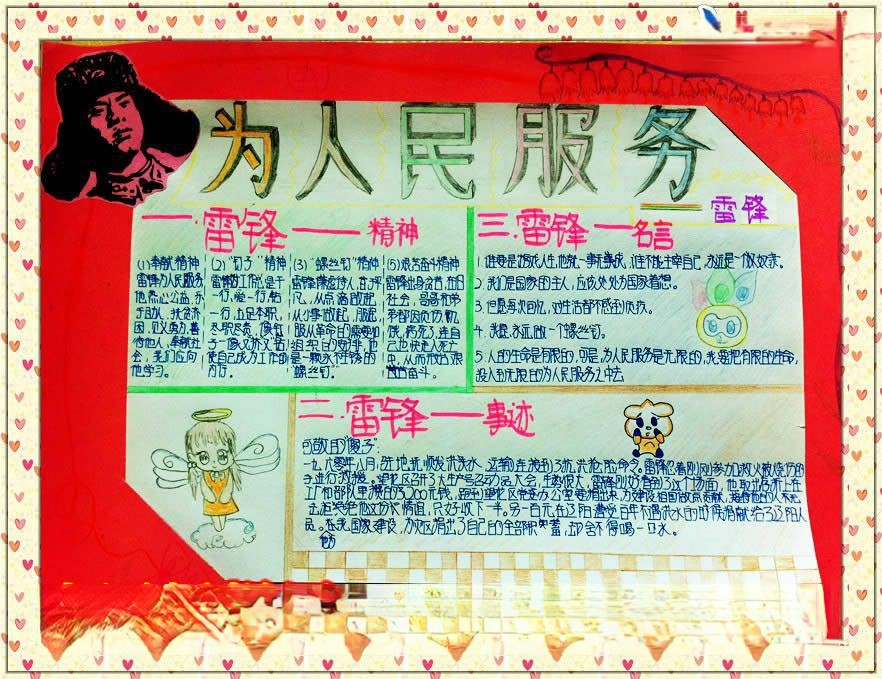 为人民服务
雷锋
一.雷锋——精神
(1)奉献精神
雷锋为人民服务,
他热心公益,乐
于助人,扶贫济
困,见义勇为,善
待他人,奉献社
会,我们应向
他学习。
(2)"钉子"精神
雷锋的工作总是干
一行,爱一行,钻
一行,立足本职,
尽职尽责,像钉
子一像又挤又钻
使自己成为工作的
内行。
(3)"螺丝钉"精神
凡,从点滴做起,
从小事做起,服起,
服从革命的需要如
组织的安排,他
是一颗永不生锈的
"螺丝钉"。
(5)艰苦奋斗精神
雷锋出身贫苦,在旧
社会,哥哥和弟
弟都因贫穷饥
饿,病死了,连自
己也快走入死亡
中,从而形成艰
苦奋斗。
三.雷锋—名言
1.谁要是游戏人生,他就一事无成,谁不能主宰自己,永远是一个奴隶。
2.我们是国家的主人,应该处处为国家着想。
3.但愿每次回忆,对生活都不感到负疚。
4.我愿永远做一个螺丝钉。
5.人的生命是有限的,可是,为人民服务是无限的,我要把有限的生命,
投入到无限的为人民服务之中去
二.雷锋—事迹
可敬的"傻子":
一九六零年八月,驻地抚顺发洪水,运输连接到了抗洪抢险命令。雷锋忍着刚刚参加救火被烧伤的
手
工厂和部队里攒的200元钱,跑到望花区党委办公室要捐出来,为建设祖国做点贡献,接待他的人不忍
只好收下一半。另一百元在辽阳遭受百年不遇洪水的时候捐献给了辽阳人
民。在我国家建设,为灾区捐出了自己的全部积蓄,却舍不得喝一口水。